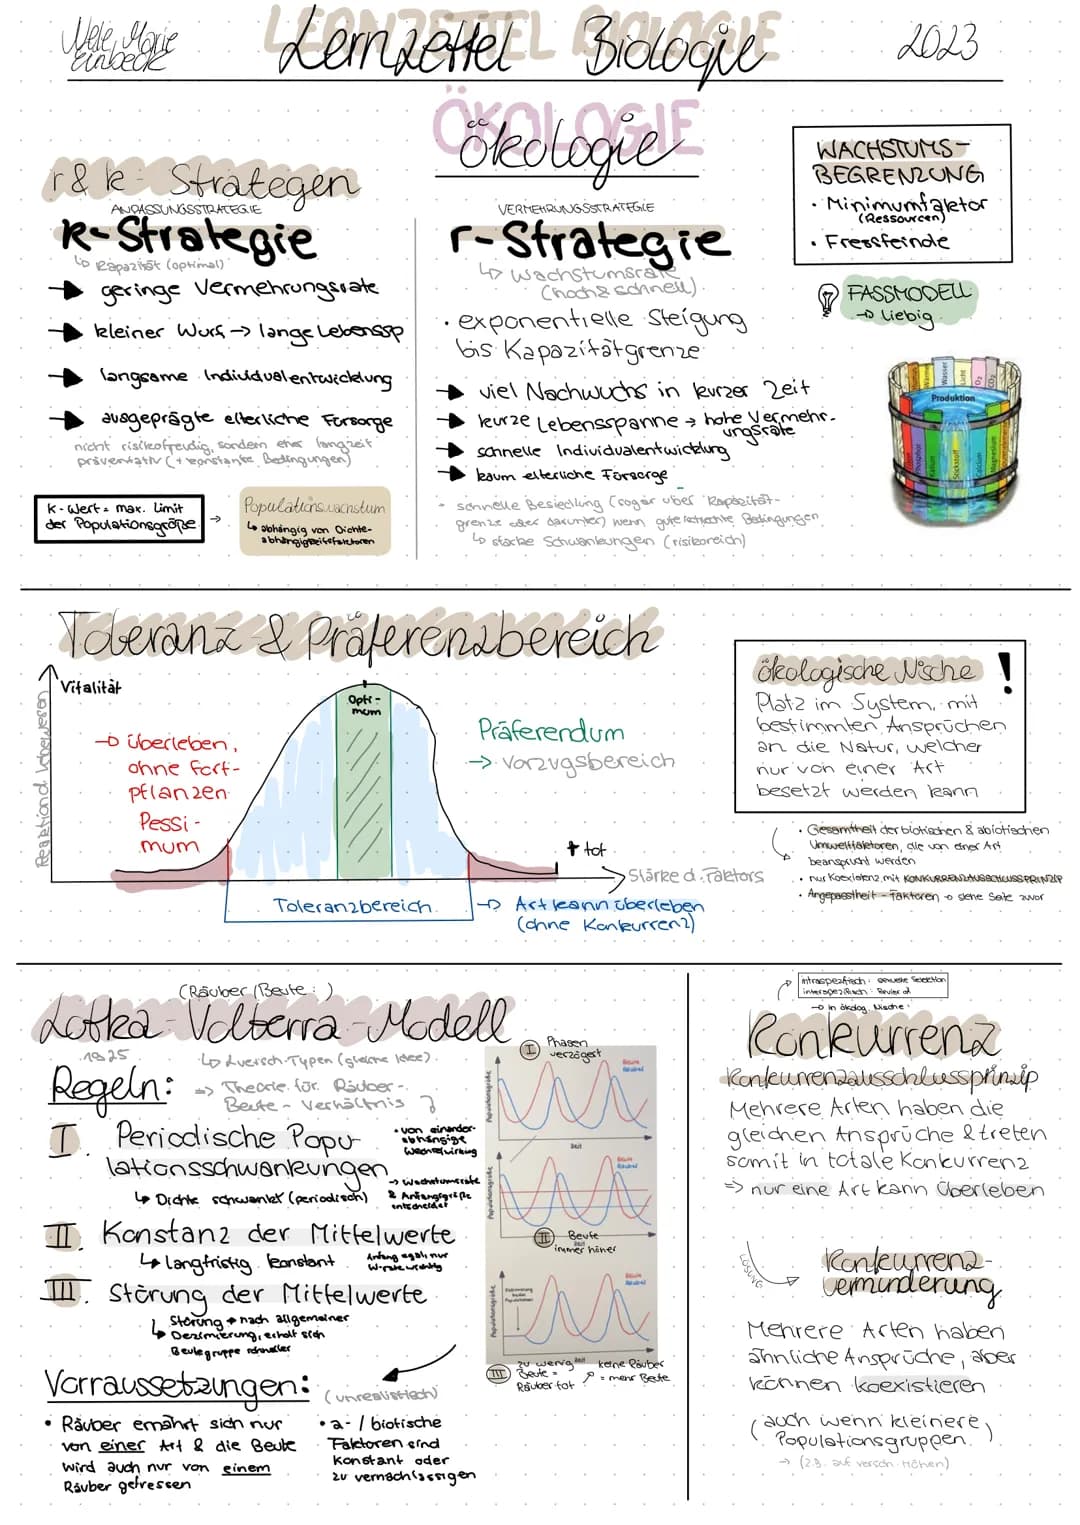 Nele Marie
Einbeck
LERNZETTEL BIOLOGIE
Lernzettel Biologie
2023
ÖKOLOGIE
ökologie
r & k - Strategen
ANPASSUNGSSTRATEGIE
K-Strategie
↳ Kapazität (optimal)
→ geringe Vermehrungsrate
→ kleiner Wurf → lange Lebenssp
→ langsame Individualentwicklung
→ ausgeprägte elterliche Fürsorge
nicht risikofreudig, sondern eher langzeit
präventativ (+ konstante Bedingungen)
K-Wert = max. Limit
der Populationsgröße
→
Populationswachstum
↳ abhängig von Dichte-
abhängigkeitsfaktoren
VERMEHRUNGSSTRATEGIE
r-Strategie
↳ Wachstumsrate
(hoch & schnell)
• exponentielle Steigung
bis Kapazitätgrenze
→ viel Nachwuchs in kurzer Zeit
→ kurze Lebensspanne → hohe Vermehr-
ungsrate
→ schnelle Individualentwicklung
→ kaum elterliche Fürsorge
• schnelle Besiedlung (sogar über Kapazität-
grenze oder darunter) wenn gute/schlechte Bedingungen
↳ starke Schwankungen (risikoreich)
WACHSTUMS-
BEGRENZUNG
• Minimumfaktor
(Ressourcen)
• Fressfeinde
FASSMODELL
→ Liebig
Wasser
Licht
O2
CO2
Produktion
Phosphor
Kalium
Stickstoff
Calcium
Magnesium
Toleranz & Präferenzbereich
Vitalität
Reaktion d. Lebewesen
→ überleben,
ohne Fort-
pflanzen
Pessi-
mum
Opti-
mum
Präferendum
→ Vorzugsbereich
† tot
Stärke d. Faktors
Toleranzbereich
→ Art kann überleben
(ohne Konkurrenz)
ökologische Nische !
Platz im System, mit
bestimmten Ansprüchen
an die Natur, welcher
nur von einer Art
besetzt werden kann
• Gesamtheit der biotischen & abiotischen
Umweltfaktoren, die von einer Art
beansprucht werden
• nur Koexistenz mit KONKURRENZAUSSCHLUSSPRINZIP
• Angepasstheit - Faktoren → siehe Seite zuvor
(Räuber/Beute :)
Lotka-Volterra-Modell
1925
↳ 2 versch. Typen (gleiche Idee)
⇒ Theorie für Räuber-
Beute-Verhältnis
Regeln:
I. Periodische Popu-
lationsschwankungen
↳ Dichte schwankt (periodisch)
• von einander
abhängige
Wechselwirkung
→ Wachstumsrate
& Anfangsgröße
entscheidet
II. Konstanz der Mittelwerte
↳ langfristig konstant
Anfang egal, nur
W-rate wichtig
III. Störung der Mittelwerte
Störung → nach allgemeiner
↳ Dezimierung, erholt sich
Beutegruppe schneller
I Phasen
verzögert
Populationsgröße
Beute
Räuber
Zeit
Populationsgröße
Beute
Räuber
II Beute
immer höher
Populationsgröße
Dezimierung
beider
Populationen
Beute
Räuber
Zeit
III zu wenig
Beute =
Räuber tot
keine Räuber
= mehr Beute
Vorraussetzungen:
(unrealistisch)
• Räuber ernährt sich nur
von einer Art & die Beute
wird auch nur von einem
Räuber gefressen
• a- / biotische
Faktoren sind
konstant oder
zu vernachlässigen
intraspezifisch: sexuelle Selektion
interspezifisch: Revier
→ in ökolog. Nische
Konkurrenz
Konkurrenzausschlussprinzip
Mehrere Arten haben die
gleichen Ansprüche & treten
somit in totale Konkurrenz
⇒ nur eine Art kann überleben
LÖSUNG
Konkurrenz-
verminderung
Mehrere Arten haben
ähnliche Ansprüche, aber
können koexistieren
(auch wenn kleinere
Populationsgruppen)
→ (z.B. auf versch. Höhen)